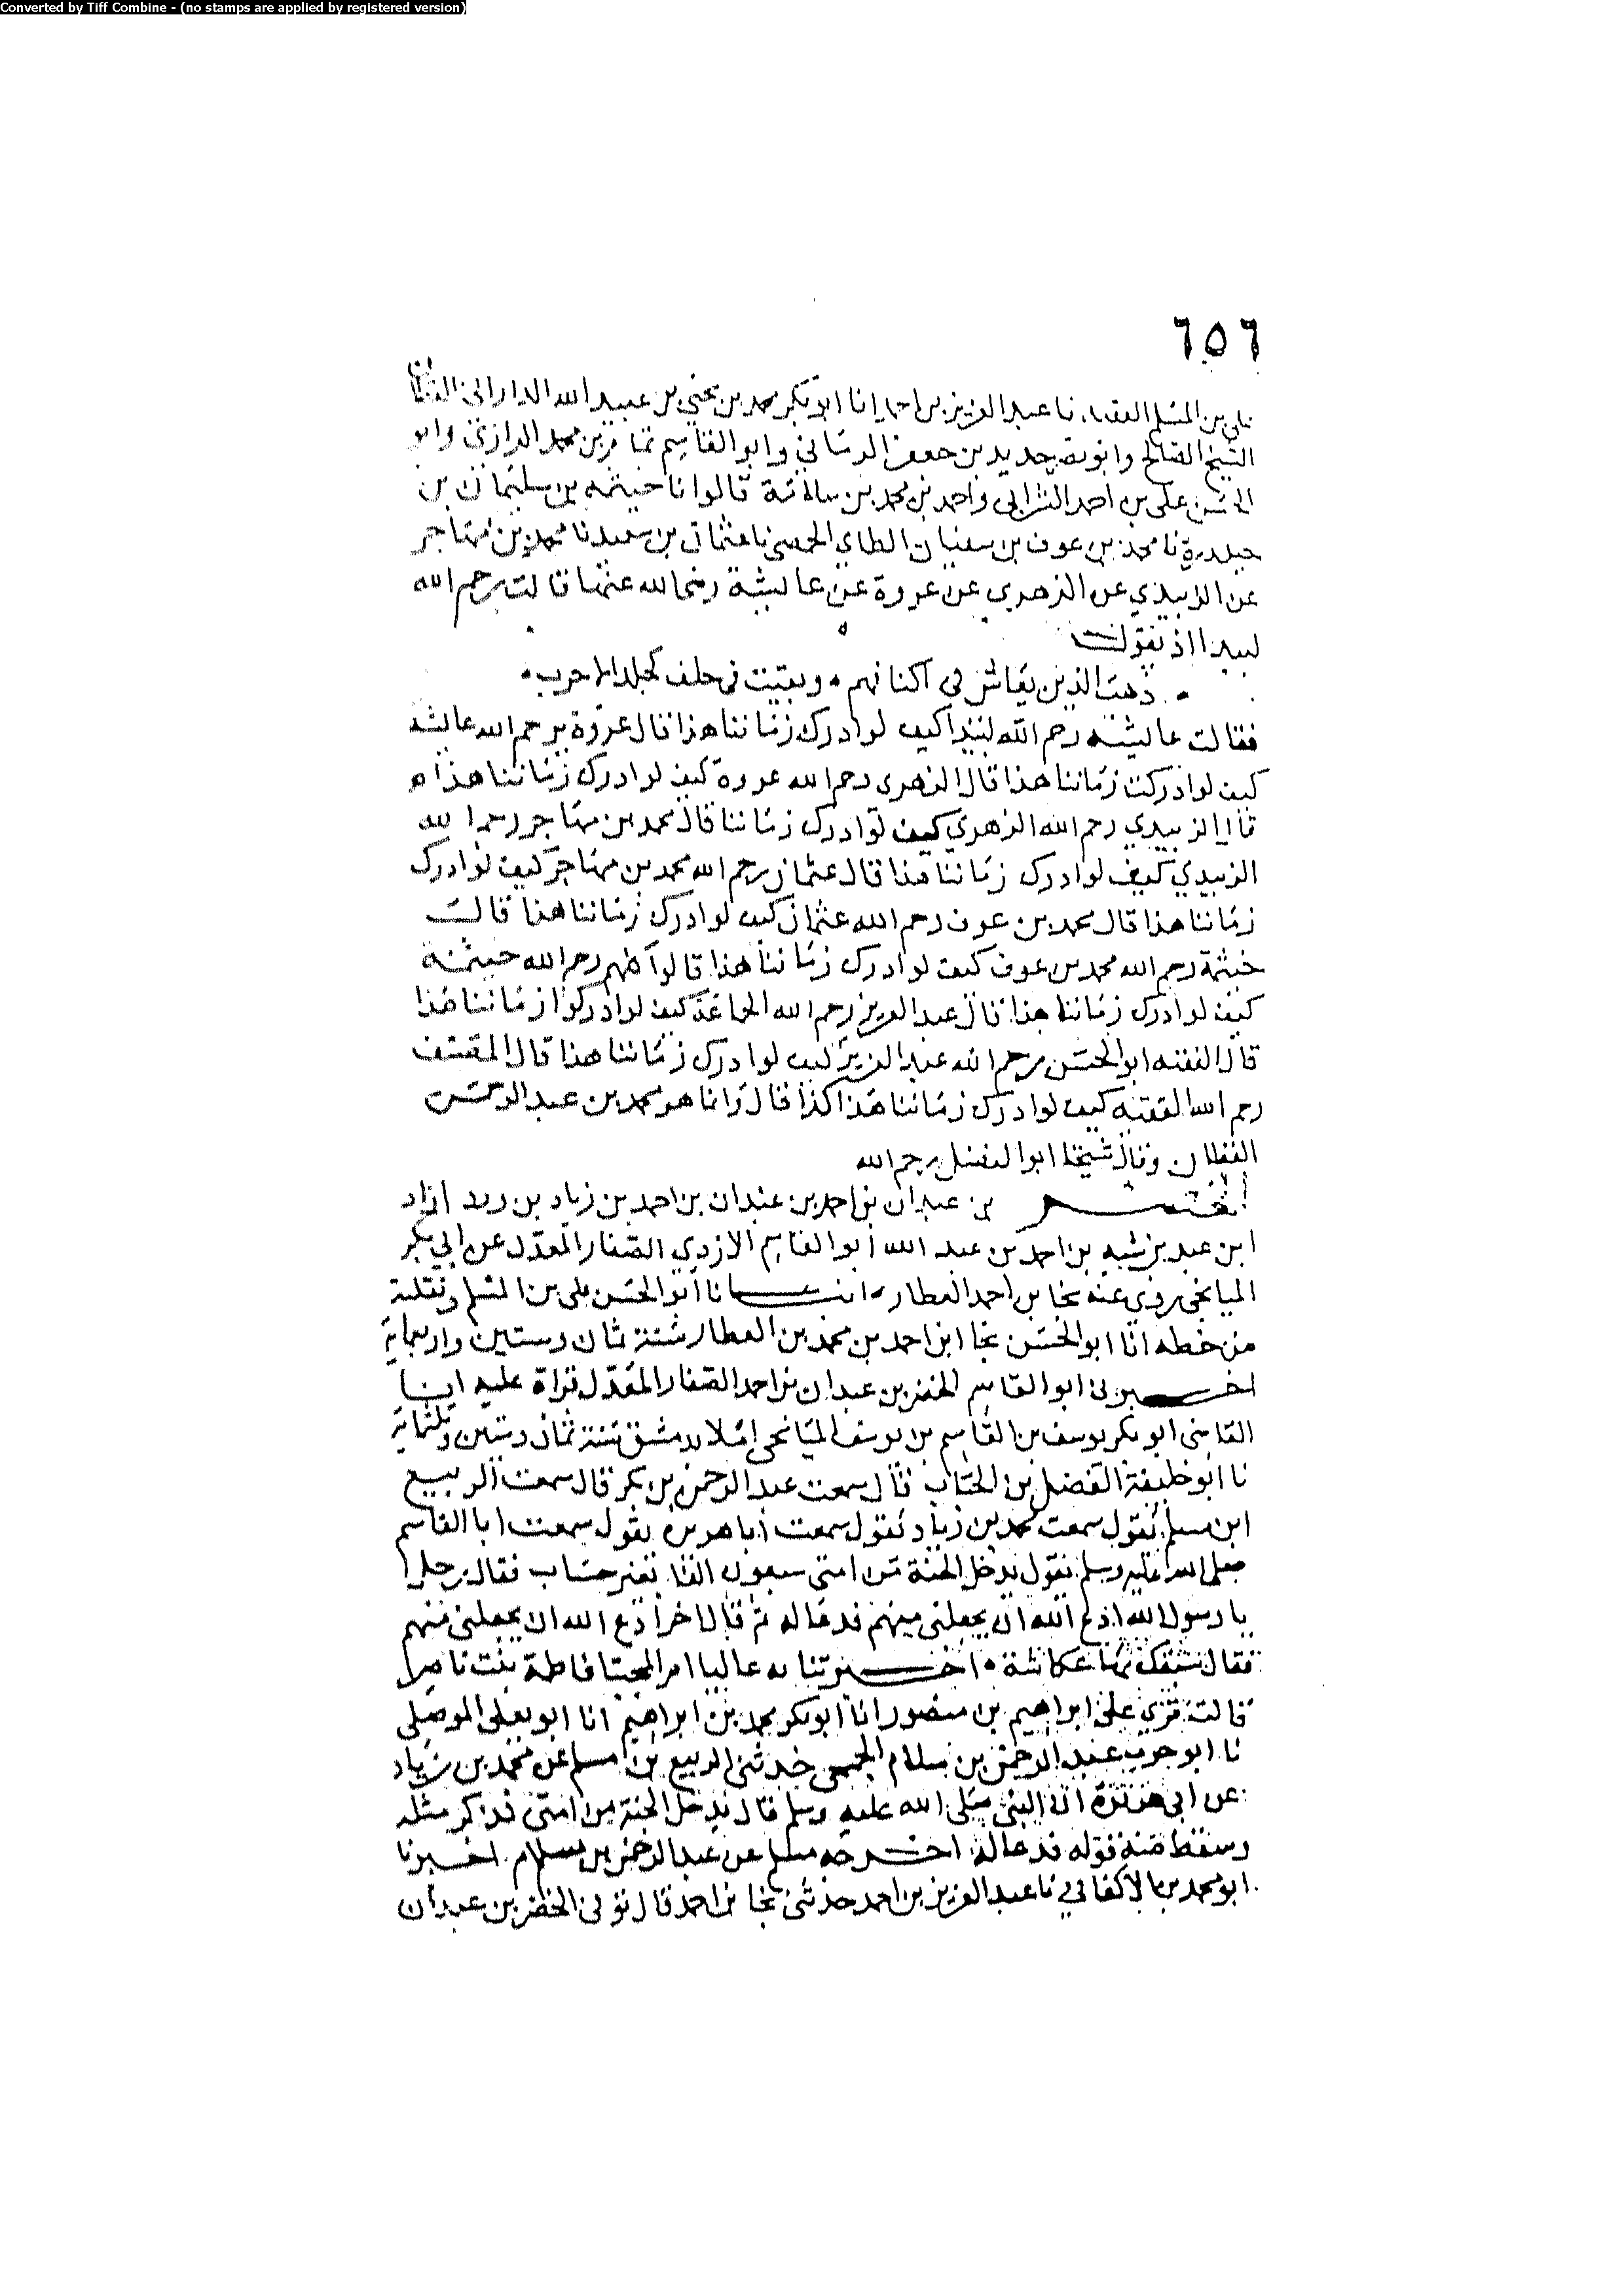 Converted by Tiff Combine - (no stamps are applied by registered version)
٦٥٦
بن المسلم الفقيه نا عبد العزيز بن احمد انا ابو بكر محمد بن يحيى بن عبيد الله الداراني القطان
الشيخ الصالح وابو حديد بن جعفر الرماني وابو القاسم تمام بن محمد الرازي وابو
الحسن علي بن احمد الشرابي واحمد بن محمد بن سلامة قالوا نا خيثمة بن سليمان بن
حيدرة نا محمد بن عوف بن سفيان الطاي الحمصي نا عثمان بن سعيد نا محمد بن مهاجر
عن الزبيدي عن الزهري عن عروة عن عايشة رضي الله عنها قالت يرحم الله
لبيدا اذ يقول
ذهب الذين يعاش في اكنافهم وبقيت في خلف كجلد الاجرب
فقالت عايشة رحم الله لبيدا كيف لو ادرك زماننا هذا قال عروة يرحم الله عايشة
كيف لو ادركت زماننا هذا قال الزهري رحم الله عروة كيف لو ادرك زماننا هذا
قال الزبيدي رحم الله الزهري كيف لو ادرك زماننا قال محمد بن مهاجر رحم الله
الزبيدي كيف لو ادرك زماننا هذا قال عثمان رحم الله محمد بن مهاجر كيف لو ادرك
زماننا هذا قال محمد بن عوف رحم الله عثمان كيف لو ادرك زماننا هذا قال
خيثمة رحم الله محمد بن عوف كيف لو ادرك زماننا هذا قالوا كلهم رحم الله خيثمة
كيف لو ادرك زماننا هذا قال عبد العزيز رحم الله الجماعة كيف لو ادركوا زماننا هذا
قال الفقيه ابو الحسن يرحم الله عبد العزيز كيف لو ادرك زماننا هذا قال المصنف
رحم الله الفقيه كيف لو ادرك زماننا هذا كذا قال وانما هو محمد بن عبد الرحمن
القطان وقال شيخنا ابو الفضل رحم الله
الخضر بن عبدان بن احمد بن عبدان بن احمد بن زياد بن ورد ازاد
ابن عبد بن شبه بن احمد بن عبد الله ابو القاسم الازدي الصفار المعدل عن ابي بكر
الميانجي روى عنه نجا بن احمد العطار انبانا ابو الحسن علي بن المسلم ونقلته
من خطه انا ابو الحسن نجا ابن احمد بن محمد بن العطار سنة ثمان وستين واربعماية
اخبرني ابو القاسم الخضر بن عبدان بن احمد الصفار المعدل قراة عليه انبا
القاضي ابو بكر يوسف بن القاسم بن يوسف الميانجي املا بدمشق سنة ثمان وستين وثلثماية
نا ابو خليفة الفضل بن الحباب قال سمعت عبد الرحمن بن بكر قال سمعت الربيع
ابن مسلم يقول سمعت محمد بن زياد يقول سمعت ابا هريرة يقول سمعت ابا القاسم
صلى الله عليه وسلم يقول يدخل الجنة من امتي سبعون الفا بغير حساب فقال رجل
يا رسول الله ادع الله ان يجعلني منهم فدعا له ثم قال اخر ادع الله ان يجعلني منهم
فقال سبقك بها عكاشة اخبرتنا به عاليا ام المجتبا فاطمة بنت ناصر
قالت قري على ابراهيم بن منصور انا ابو بكر محمد بن ابراهيم انا ابو يعلى الموصلي
نا ابو حرب عبد الرحمن بن سلام الجمحي حدثني الربيع بن مسلم عن محمد بن زياد
عن ابي هريرة ان النبي صلى الله عليه وسلم قال يدخل الجنة من امتي فذكر مثله
وسقط منه قوله فدعا له اخرجه مسلم عن عبد الرحمن بن سلام اخبرنا
ابو محمد بن الاكفاني نا عبد العزيز بن احمد حدثني نجا بن احمد قال توفي الخضر بن عبدان